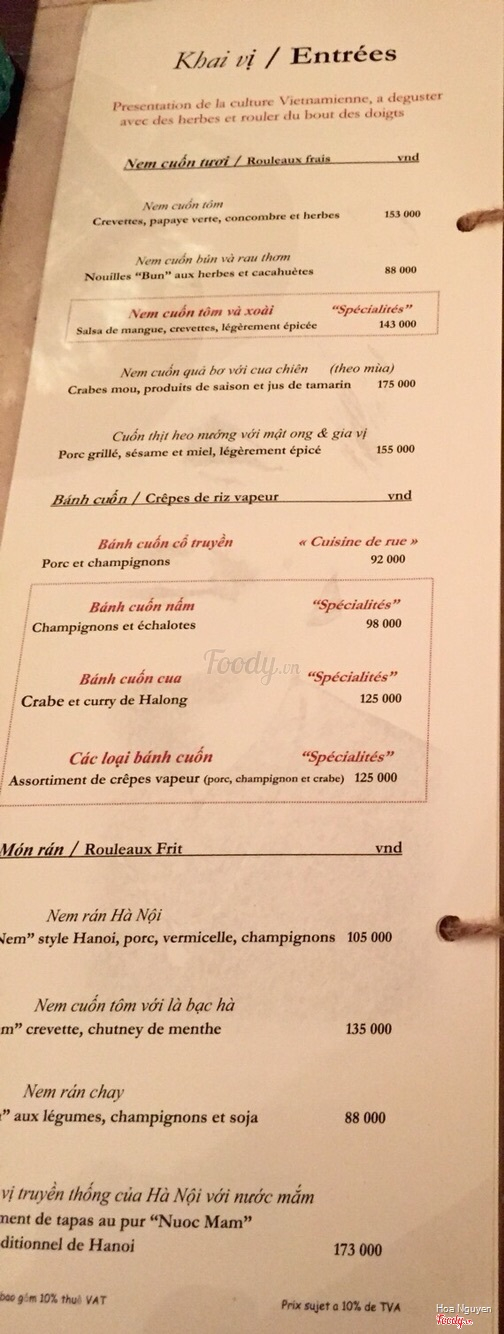 Khai vị / Entrées
Presentation de la culture Vietnamienne, a deguster
avec des herbes et rouler du bout des doigts
Nem cuốn tươi / Rouleaux frais vnd
Nem cuốn tôm
Crevettes, papaye verte, concombre et herbes 153 000
Nem cuốn bún và rau thơm
Nouilles “Bun” aux herbes et cacahuètes 88 000
Nem cuốn tôm và xoài “Spécialités”
Salsa de mangue, crevettes, légèrement épicée 143 000
Nem cuốn quả bơ với cua chiên (theo mùa)
Crabes mou, produits de saison et jus de tamarin 175 000
Cuốn thịt heo nướng với mật ong & gia vị
Porc grillé, sésame et miel, légèrement épicé 155 000
Bánh cuốn / Crêpes de riz vapeur vnd
Bánh cuốn cổ truyền « Cuisine de rue »
Porc et champignons 92 000
Bánh cuốn nấm “Spécialités”
Champignons et échalotes 98 000
Foody.vn
Bánh cuốn cua “Spécialités”
Crabe et curry de Halong 125 000
Các loại bánh cuốn “Spécialités”
Assortiment de crêpes vapeur (porc, champignon et crabe) 125 000
Món rán / Rouleaux Frit vnd
Nem rán Hà Nội
Nem” style Hanoi, porc, vermicelle, champignons 105 000
Nem cuốn tôm với là bạc hà
m” crevette, chutney de menthe 135 000
Nem rán chay
” aux légumes, champignons et soja 88 000
vị truyền thống của Hà Nội với nước mắm
ment de tapas au pur “Nuoc Mam”
ditionnel de Hanoi 173 000
bao gồm 10% thuế VAT
Prix sujet a 10% de TVA
Hoa Nguyen
Foody.vn